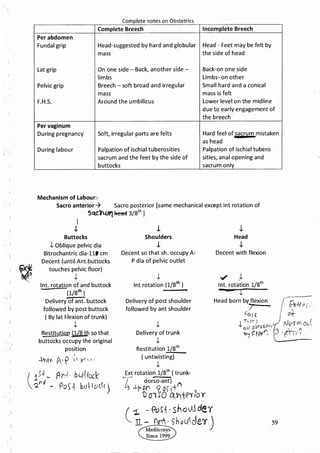 Complete notes on Obstetrics
Complete Breech
Incomplete Breech
Per abdomen
Fundal grip
Head-suggested by hard and globular mass
Head - Feet may be felt by the side of head
Lat grip
On one side – Back, another side – limbs
Back-on one side
Limbs- on other
Pelvic grip
Breech – soft broad and irregular mass
Small hard and a conical mass is felt
F.H.S.
Around the umbilicus
Lower level on the midline due to early engagement of the breech
Per vaginum
During pregnancy
Soft, irregular parts are felts
Hard feel of sacrum mistaken as head
During labour
Palpation of ischial tuberosities sacrum and the feet by the side of buttocks
Palpation of ischial tubero sities, anal opening and sacrum only
Mechanism of Labour:-
Sacro anterior → Sacro posterior [same mechanical except int rotation of
Sacrum 3/8th ]
↓ ↓ ↓
Buttocks
↓ Oblique pelvic dia
Bitrochantric dia-11 cm
Decent (until Ant.buttocks
touches pelvic floor)
↓
Int. rotation of and buttock
(1/8th)
Delivery of ant. buttock
followed by post buttock
( By lat Flexion of trunk)
↓
Restitution (1/8th so that
buttocks occupy the original
position
1st - Ant. buttock
2nd - Post buttock
Shoulders
↓
Decent so that sh. occupy A-
P dia of pelvic outlet
↓
Int rotation (1/8th )
↓
Delivery of post shoulder
followed by ant shoulder
↓
Delivery of trunk
↓
Restitution 1/8th
( untwisting)
↓
Ext rotation 1/8th ( trunk-
dorso-ant)
Dorso anterior
I - Post. shoulder
II - Ant. shoulder
Head
↓
Decent with flexion
↓
Int. rotation 1/8th
↓
Head born by flexion
face
59
Medicosys
Since 1999